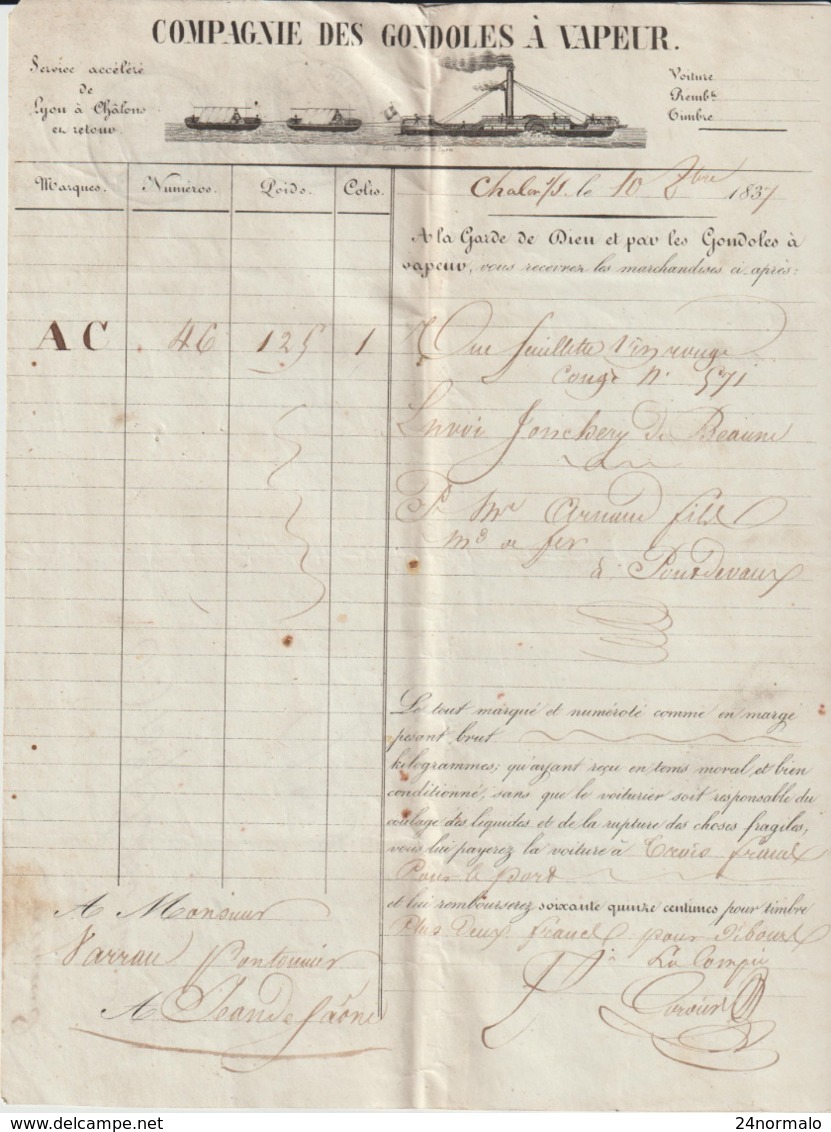 COMPAGNIE DES GONDOLES À VAPEUR.
Service accéléré
de
Lyon à Châlons
et retour.
Voiture
Remb.t
Timbre
Marques. Numéros. Poids. Colis.
Chalon s/S. le 10 8bre 1837
A la Garde de Dieu et par les Gondoles à
vapeur, vous recevrez les marchandises ci-après:
AC 46 125 1
Une feuillette Vin rouge
Congé N. 571
Envoi Jonchery De Beaune
Pr Mr Arnaud fils
Md de fer
à Pontdevaux
Le tout marqué et numéroté comme en marge
pesant brut
kilogrammes; qu'ayant reçu en tems moral, et bien
conditionné, sans que le voiturier soit responsable du
coulage des liquides et de la rupture des choses fragiles,
vous lui payerez la voiture à Trois francs
Pour le port
et lui rembourserez soixante quinze centimes pour timbre
Plus Deux francs pour débours
A Monsieur
Varrau Pontonnier
A Jean de Saône
La Compie
24normalo